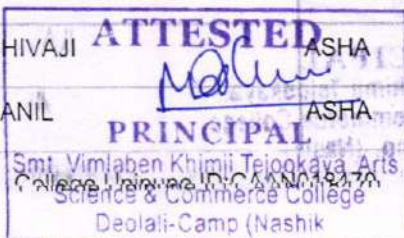 HIVAJI ATTESTED ASHA
ANIL ASHA
PRINCIPAL
Smt. Vimlaben Khimji Tejookaya Arts
College
Science & Commerce College
Deolali-Camp (Nashik